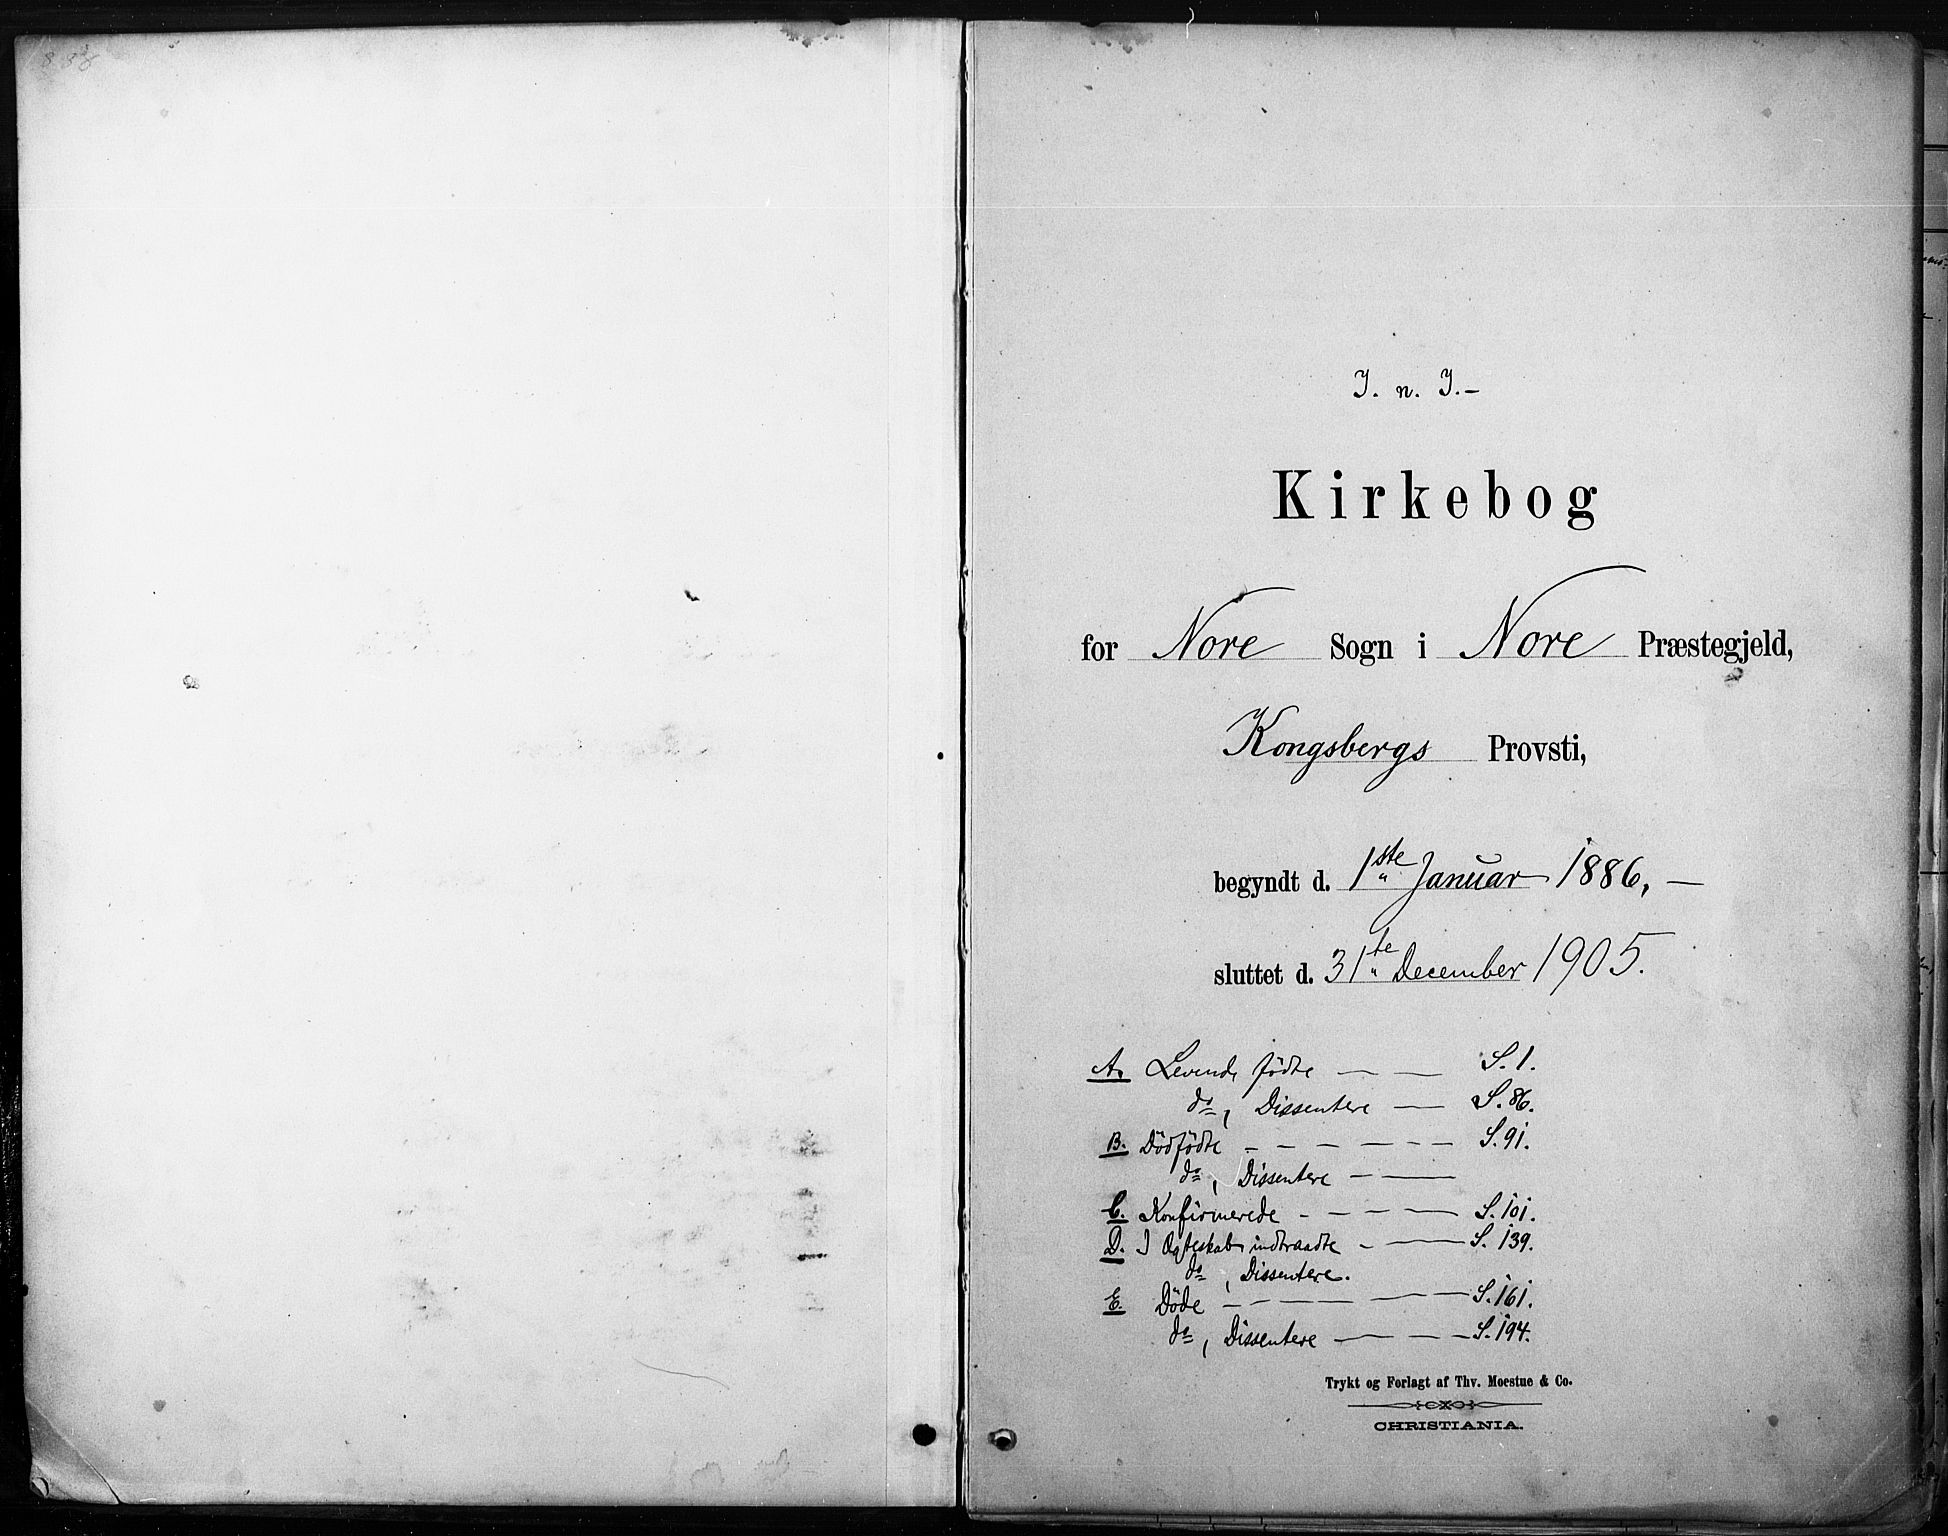 838
I. n. I.-
Kirkebog
for Nore Sogn i Nore Præstegjeld,
Kongsbergs Provsti,
begyndt d. 1ste Januar 1886, —
sluttet d. 31te December 1905.
A. Levende fødte — — S. 1.
do, Dissentere — S. 86.
B. Dødfødte - - - - - - S. 91.
do, Dissentere - - —
C. Konfirmerede - - - - — S. 101.
D. I Ægteskab indtraadte - — S. 139.
do, Dissentere.
E. Døde - - - — — — S. 161.
do, Dissentere — - - - S. 194.
Trykt og Forlagt af Thv. Moestue & Co.
CHRISTIANIA.